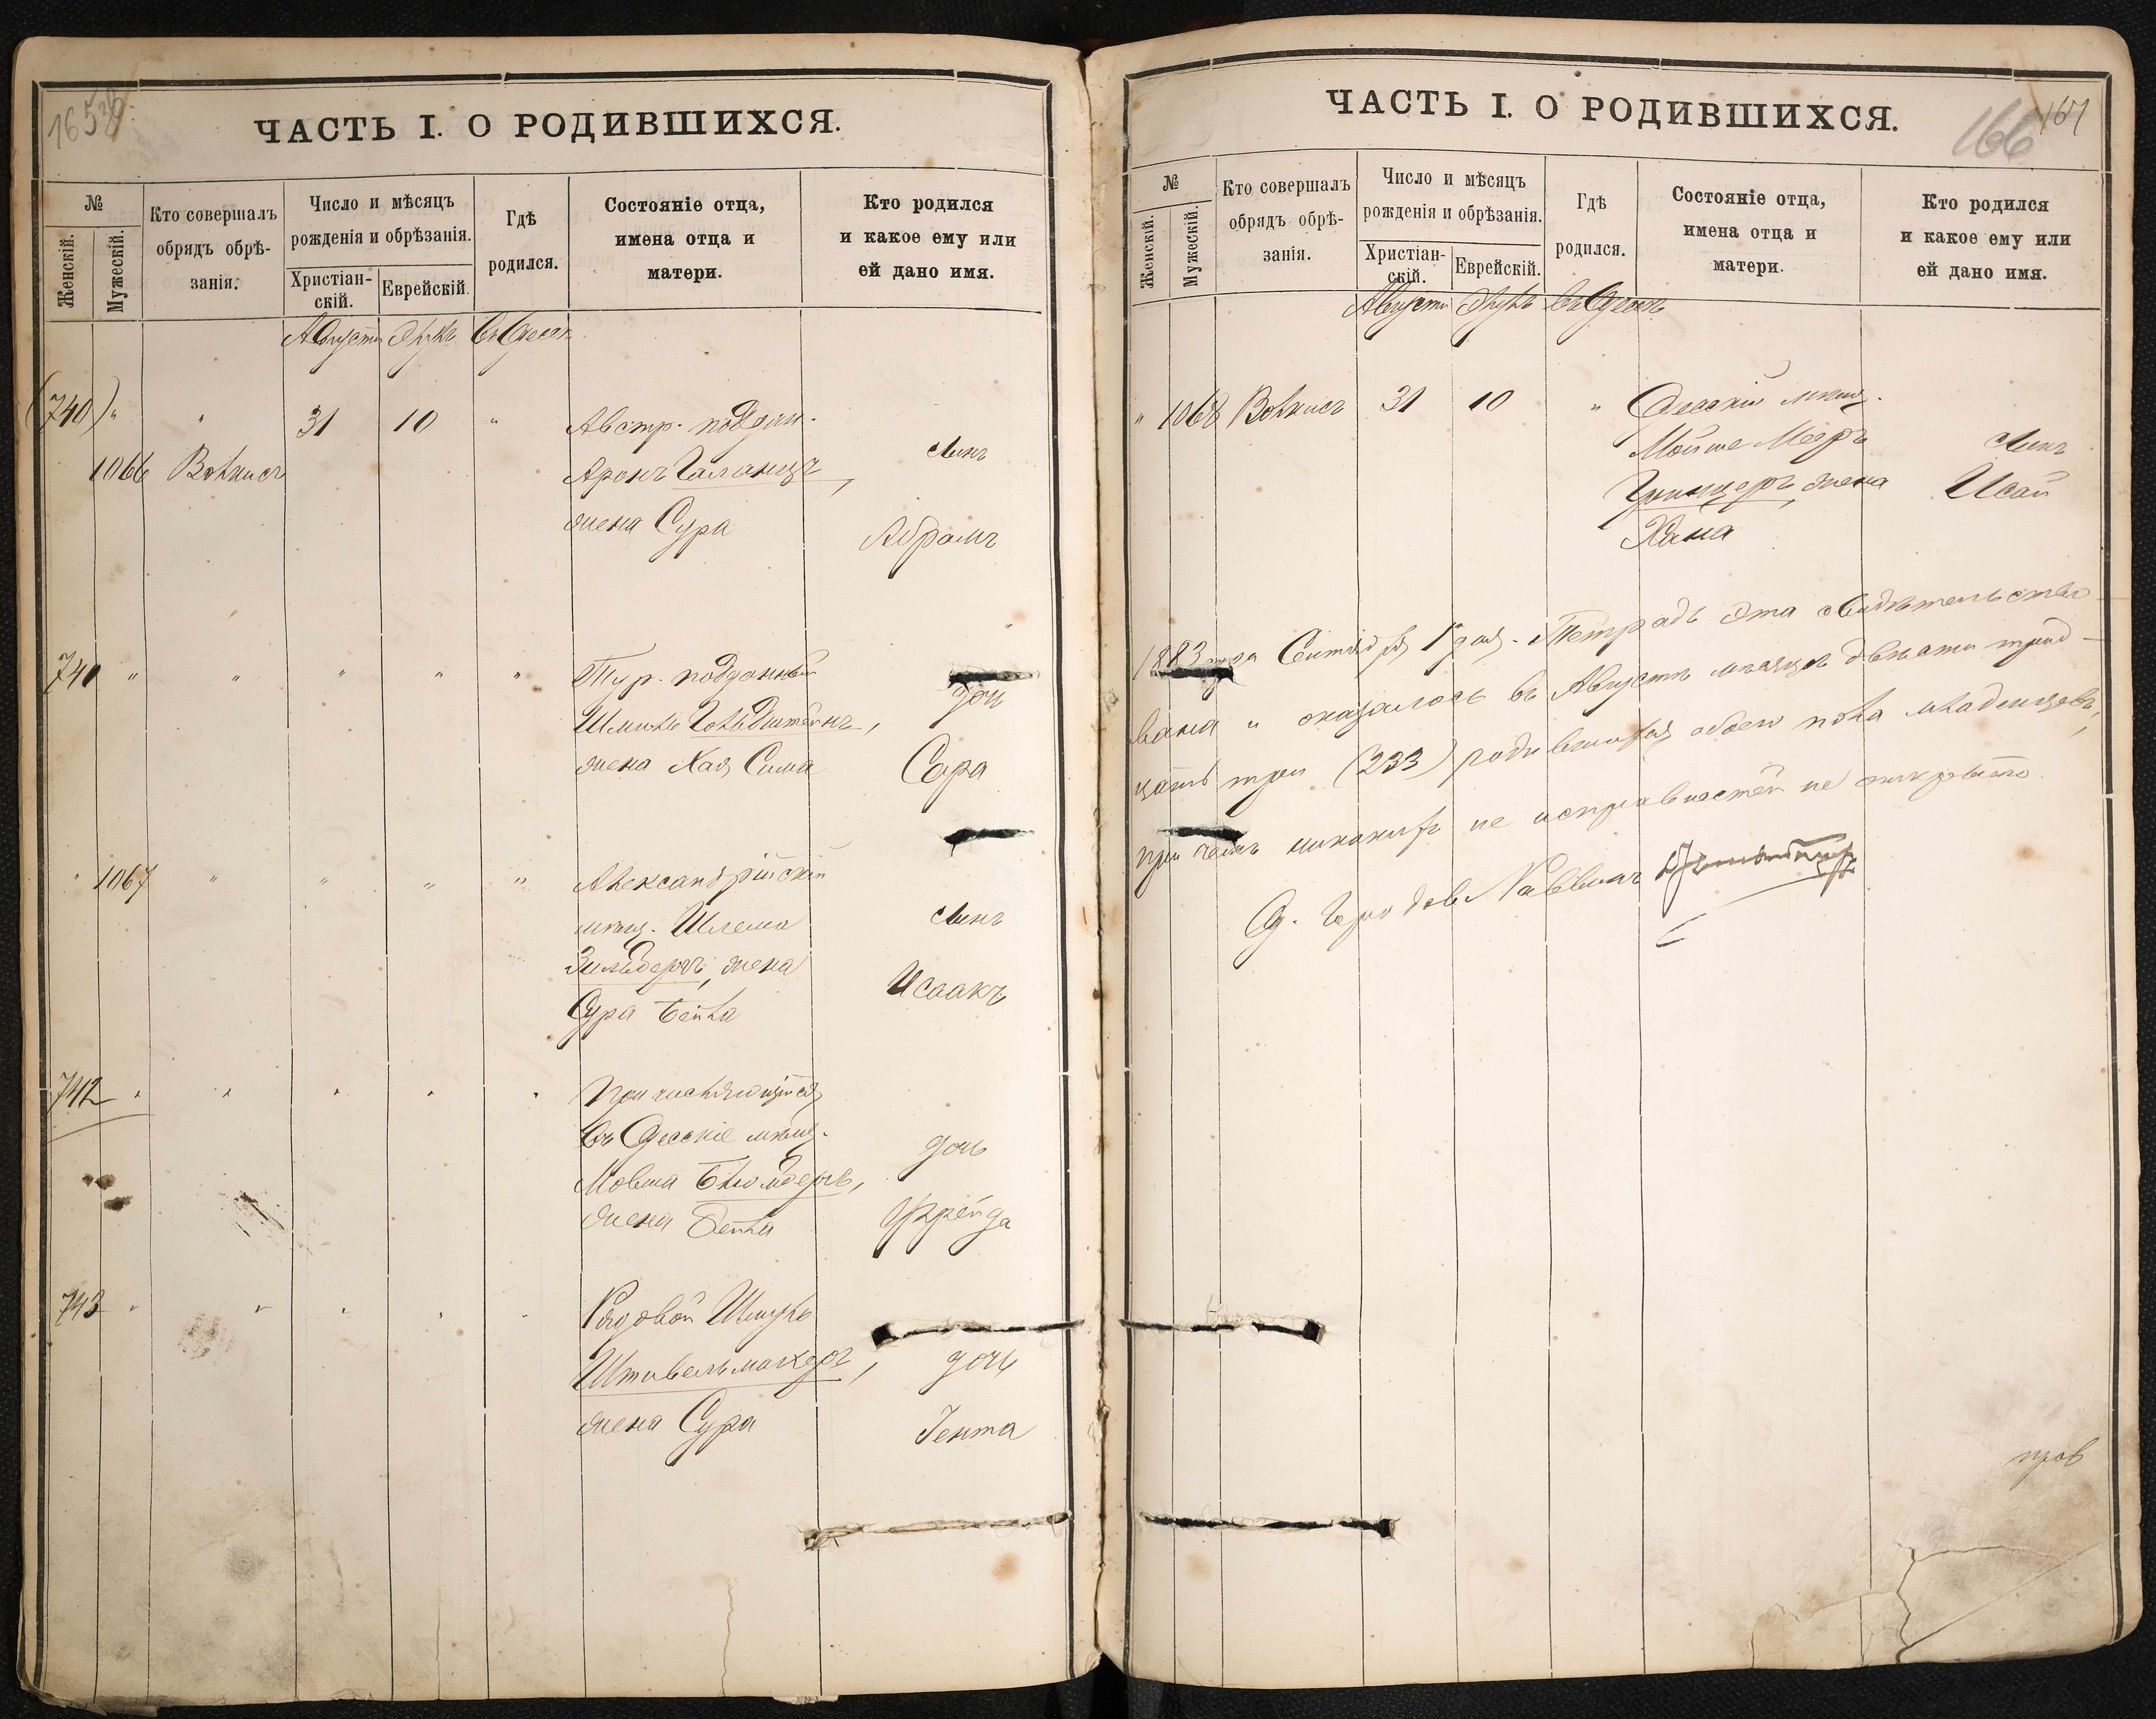 165
ЧАСТЬ I. О РОДИВШИХСЯ.
№
Женскій.
Мужескій.
Кто совершалъ
обрядъ обрѣ-
занія.
Число и мѣсяцъ
рожденія и обрѣзанія.
Христіан-
скій.
Еврейскій.
Гдѣ
родился.
Состояніе отца,
имена отца и
матери.
Кто родился
и какое ему или
ей дано имя.
Августъ Элулъ Въ Одессѣ
(740) " " 31 10 " Австр. поддан.
1066 Волкисъ Аронъ Галанцъ, Сынъ
жена Сура Абрамъ
741 " " " " " Тур. подданный
Шмиль Гольдштейнъ, дочь
жена Хая Сима Сара
" 1067 " " " " Александрійскій
мѣщ. Шлема Сынъ
Зильберъ, жена Исаакъ
Сура Бейла
742 " " " " " Причисляющійся
въ Одесскіе мѣщ.
Мовша Блюмберъ, дочь
жена Бейла Фрейда
743 " " " " " Рядовой Шмуль
Штивельмахеръ, дочь
жена Сура Гента
166 167
ЧАСТЬ I. О РОДИВШИХСЯ.
№
Женскій.
Мужескій.
Кто совершалъ
обрядъ обрѣ-
занія.
Число и мѣсяцъ
рожденія и обрѣзанія.
Христіан-
скій.
Еврейскій.
Гдѣ
родился.
Состояніе отца,
имена отца и
матери.
Кто родился
и какое ему или
ей дано имя.
Августъ Элулъ Въ Одессѣ
" 1068 Волкисъ 31 10 " Одесскій мѣщ.
Мойше Меръ Сынъ
жена Исай
Хана
1883 года Сентября 1 дня. Тетрадь эта свидѣтельство-
вана и оказалось въ Августѣ мѣсяцѣ двѣсти трид-
цать три (233) родившихся обоего пола младенцевъ,
при чемъ никакихъ не исправностей не открыто
Од. Городовой Раввинъ